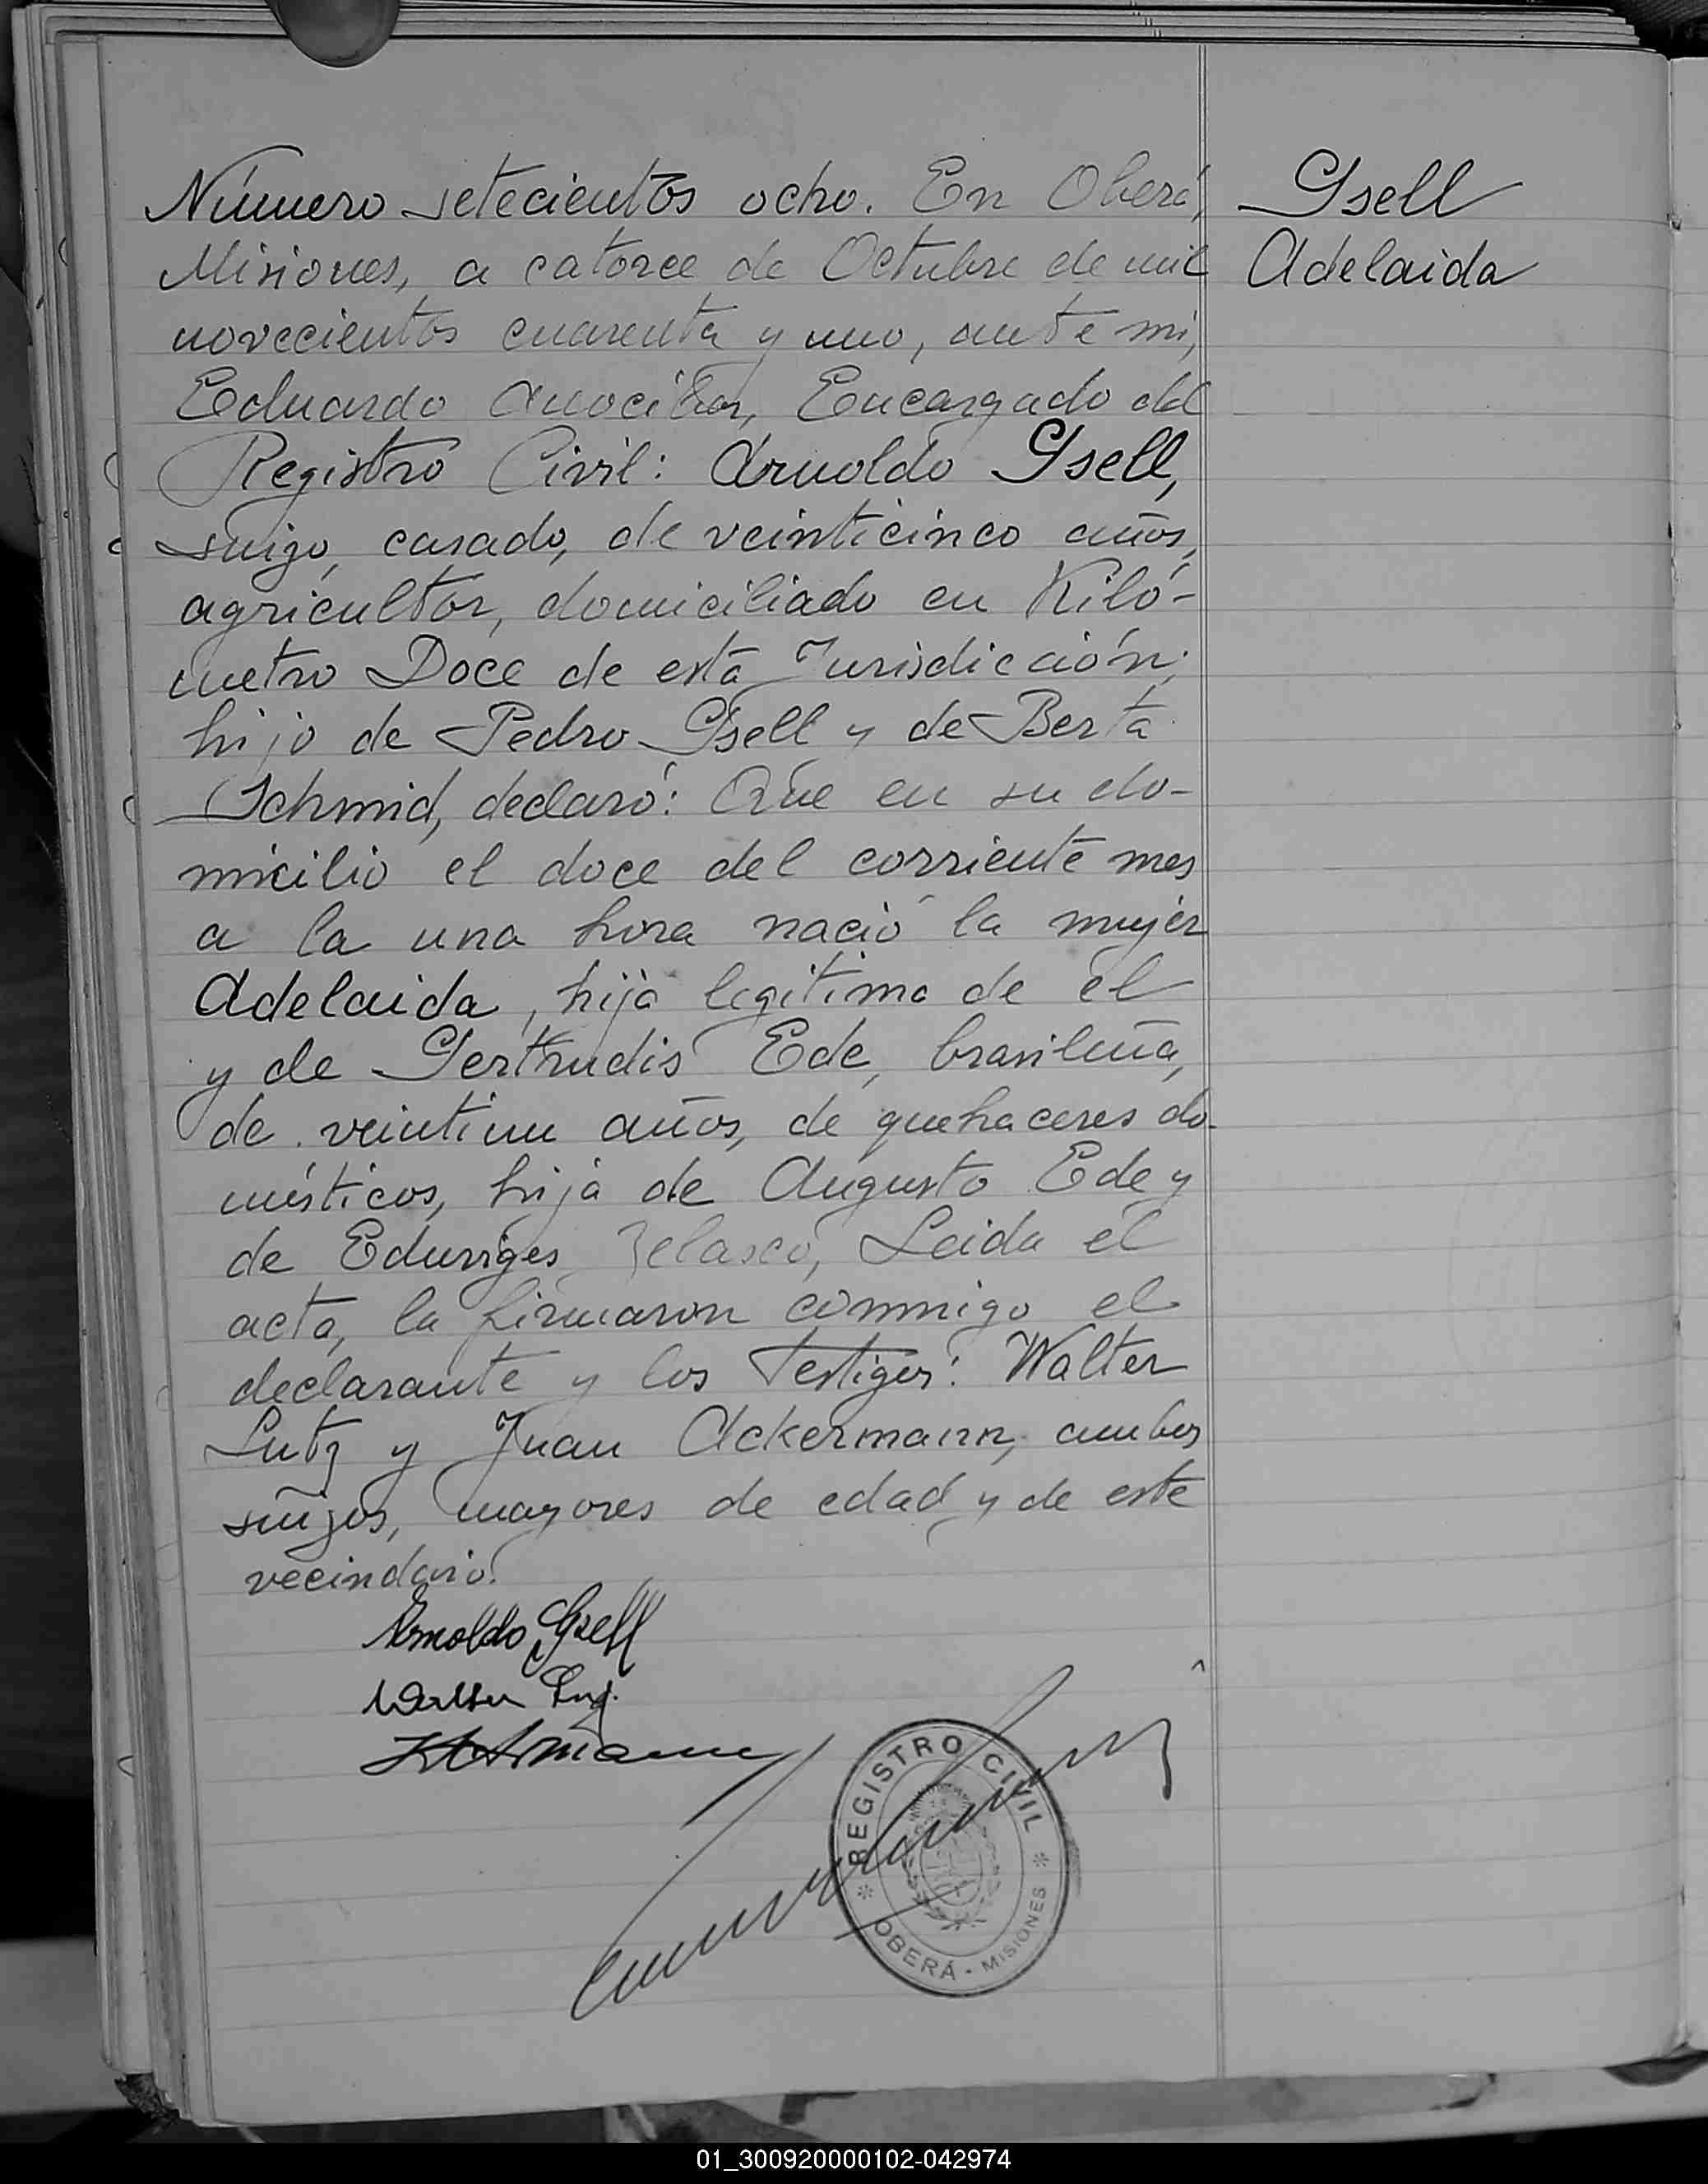 Número setecientos ocho. En Oberá,
Misiones, a catorce de Octubre de mil
novecientos cuarenta y uno, ante mi,
Eduardo Encargado del
Registro Civil: Arnoldo Gsell,
suizo, casado, de veinticinco años,
agricultor, domiciliado en Kiló-
metro Doce de esta Jurisdicción;
hijo de Pedro Gsell y de Berta
Schmid, declaró: Que en su do-
micilio el doce del corriente mes
a la una hora nació la mujer
Adelaida, hija legitima de el
y de Gertrudis Ede, brasileña,
de veintiun años, de quehaceres do-
mésticos, hija de Augusto Ede y
de Eduviges Velasco, Leida el
acta, la firmaron conmigo el
declarante y los testigos: Walter
Lutz y Juan Ackermann, ambos
suizos, mayores de edad y de este
vecindario.
Gsell
Adelaida
Arnoldo Gsell
Walter
REGISTRO CIVIL
* OBERÁ - MISIONES *
01_300920000102-042974